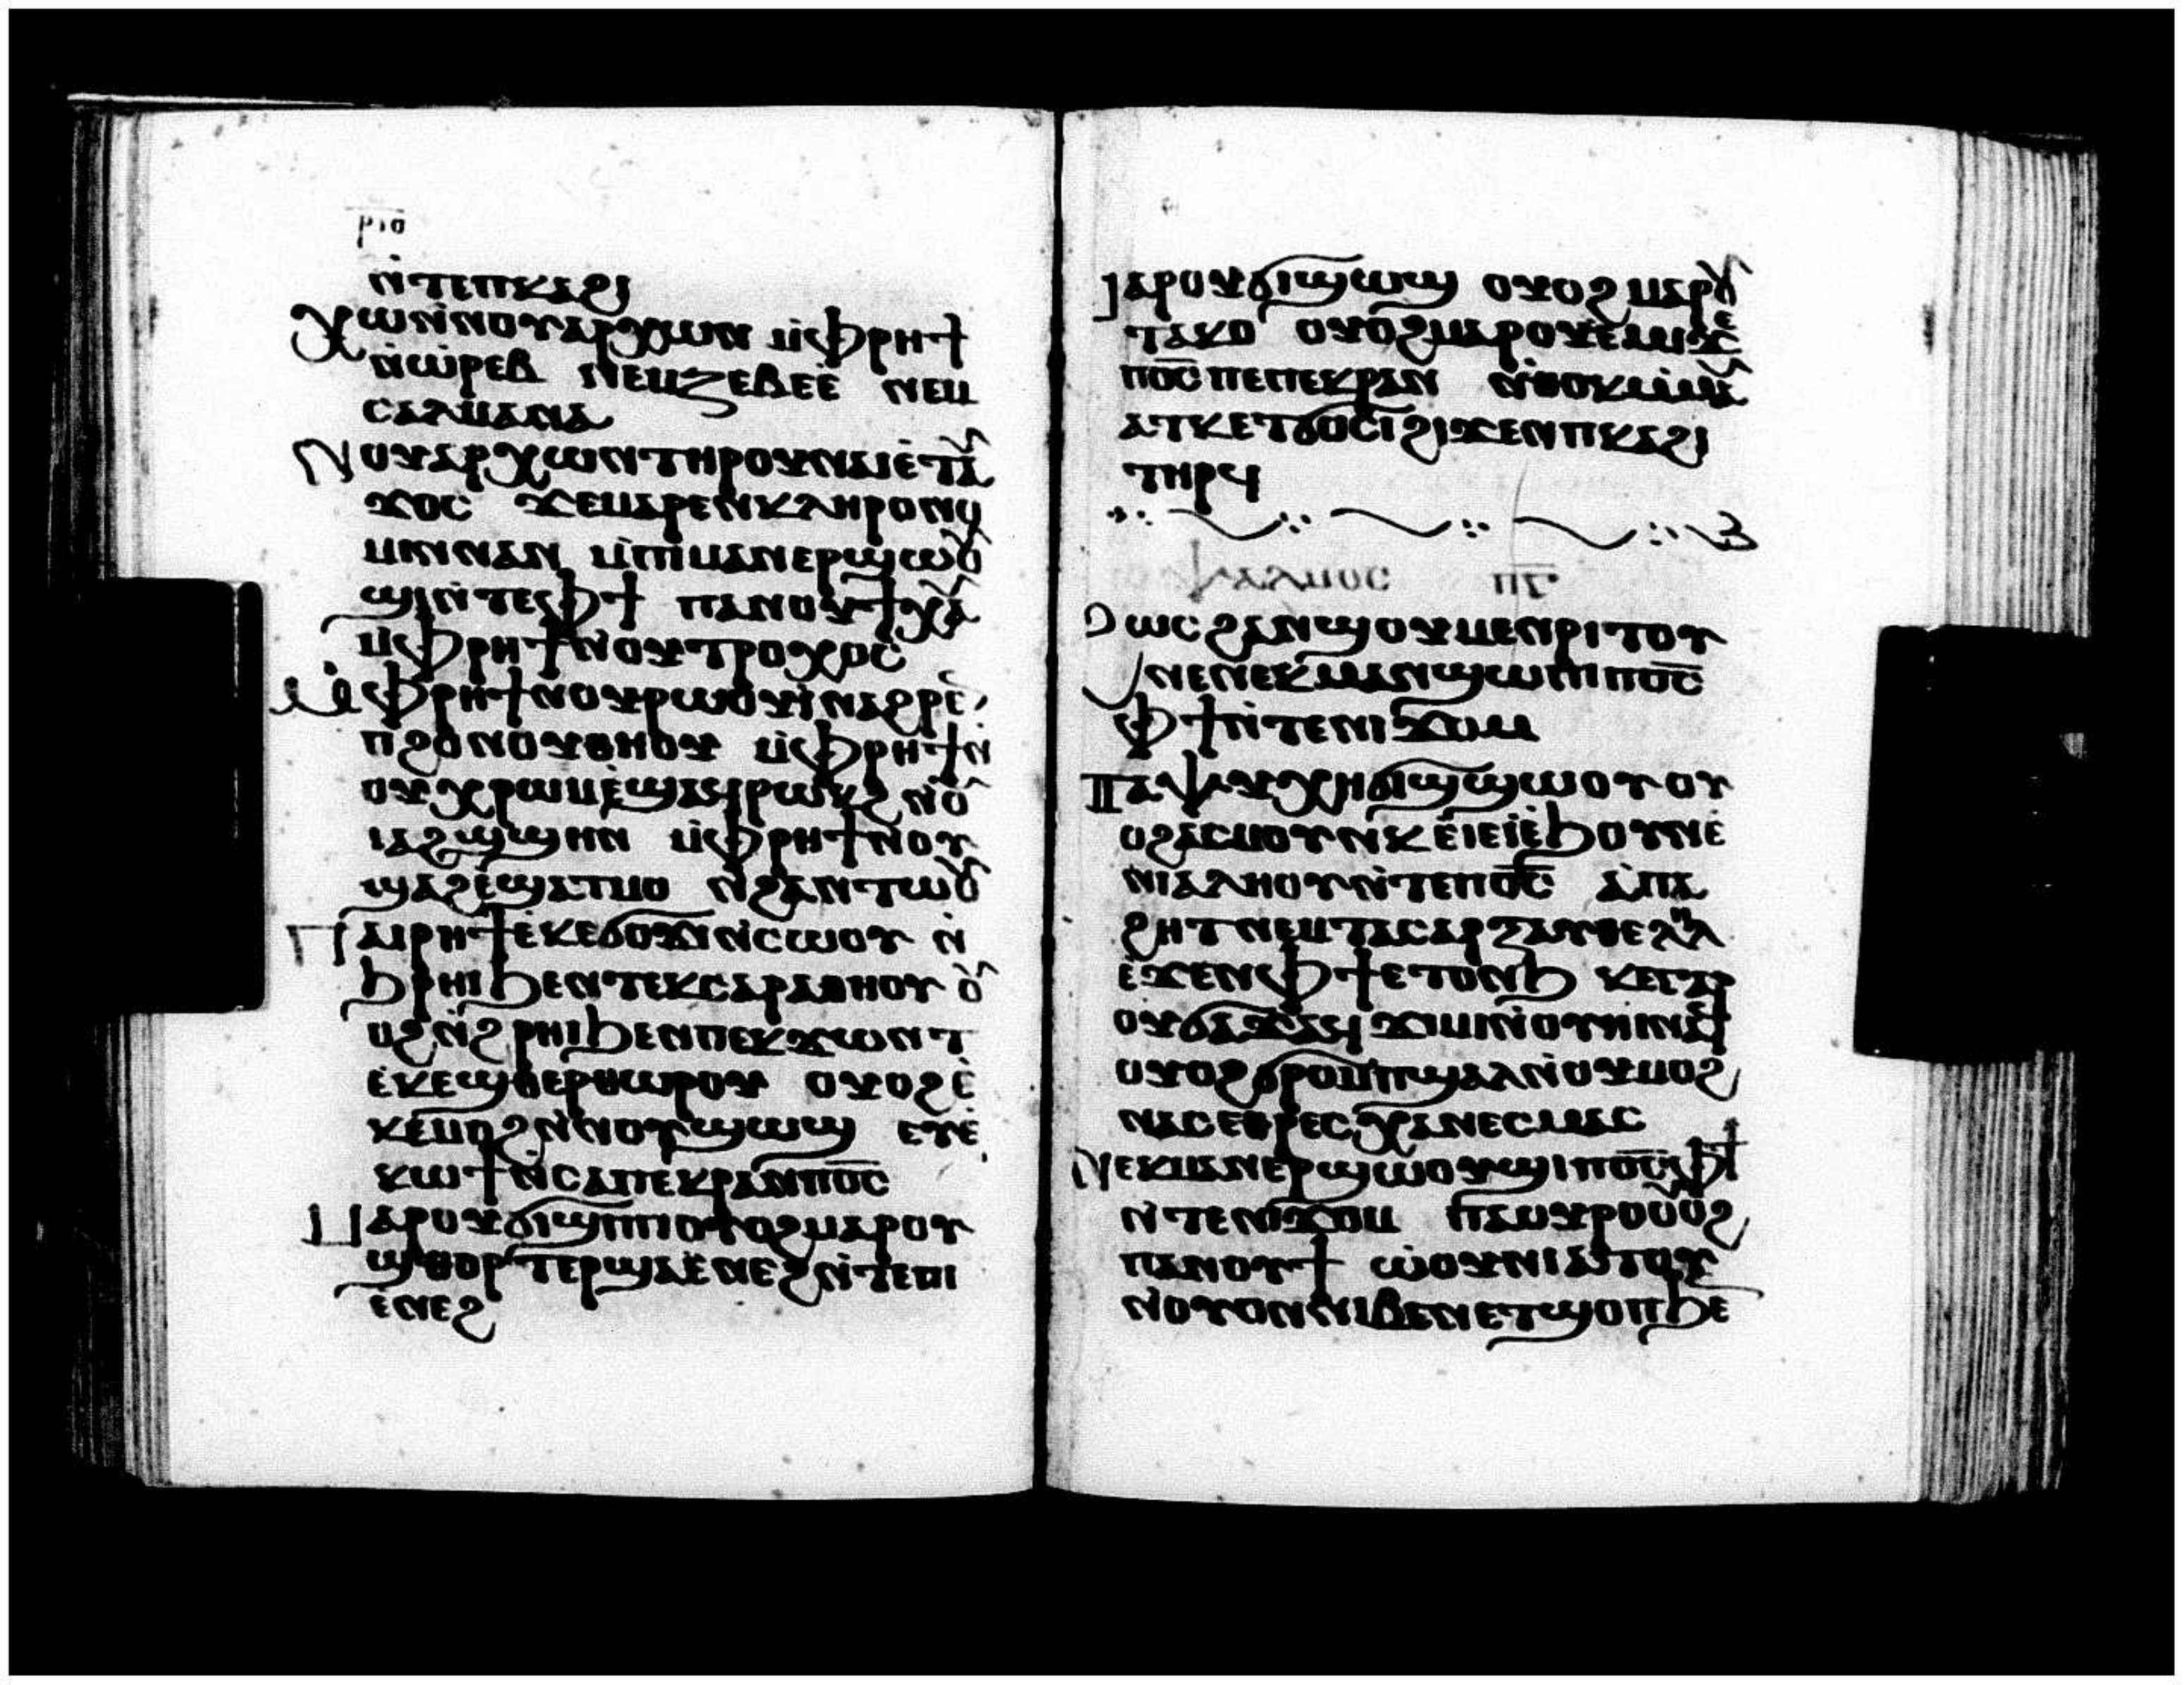 ⲣⲓⲑ
ⲛ̇ⲧⲉⲡⲕⲁϩⲓ
ⲭⲱⲛ̇ⲛⲟⲩⲁⲣⲭⲱⲛ ⲙ̇ⲫⲣⲏϯ
ⲛ̇ⲱⲣⲉⲃ ⲛⲉⲙⲍⲉⲃⲉⲉ̀ ⲛⲉⲙ
ⲥⲁⲗⲙⲁⲛⲁ
ⲛⲟⲩⲁⲣⲭⲱⲛⲧⲏⲣⲟⲩⲛⲁⲓⲉ̀ⲧⲁⲩ
ϫⲟⲥ ϫⲉⲙⲁⲣⲉⲛⲕⲗⲏⲣⲟⲛⲟ
ⲙⲓⲛⲛⲁⲛ ⲙ̇ⲡⲓⲙⲁⲛⲉⲣϣⲱⲟⲩ
ϣⲓⲛ̇ⲧⲉⲫϯ ⲡⲁⲛⲟⲩϯⲭⲁⲩ
ⲙ̇ⲫⲣⲏϯⲛⲟⲩⲧⲣⲟⲭⲟⲥ
ⲙ̇ⲫⲣⲏϯⲛⲟⲩⲣⲱⲟⲩⲓ̇ⲛⲁϩⲣⲉ̀
ⲡϩⲟⲛⲟⲩⲑⲏⲟⲩ ⲙ̇ⲫⲣⲏϯⲛ̇
ⲟⲩⲭⲣⲱⲙⲉ̀ϣⲁϥⲣⲱⲕϩ ⲛ̇ⲟⲩ
ⲓⲁϩϣϣⲏⲛ ⲙ̇ⲫⲣⲏϯⲛⲟⲩ
ϣⲁϩⲉ̀ϣⲁϥⲙⲟ ⲛ̇ϩⲁⲛⲧⲱⲟⲩ
ⲡⲁⲓⲣⲏϯⲉ̀ⲕⲉϭⲟϫⲓⲛ̇ⲥⲱⲟⲩ ⲛ̇
ϧⲣⲏⲓϧⲉⲛⲧⲉⲕⲥⲁⲣⲁⲑⲏⲟⲩ ⲟⲩ
ⲟϩⲛ̇ϩⲣⲏⲓϧⲉⲛⲡⲉⲕϫⲱⲛⲧ
ⲉ̀ⲕⲉϣⲑⲉⲣⲑⲱⲣⲟⲩ ⲟⲩⲟϩⲉ̀
ⲕⲉⲙⲟϩⲛ̇ⲛⲟⲩϣⲱϣ ⲉⲩⲉ̀
ⲕⲱϯⲛ̇ⲥⲁⲡⲉⲕⲣⲁⲛⲡⲟ̅ⲥ̅
ⲙⲁⲣⲟⲩϭⲓϣⲓⲡⲓⲟⲩⲟϩⲙⲁⲣⲟⲩ
ϣⲑⲟⲣⲧⲉⲣϣⲁⲉ̀ⲛⲉϩⲛ̇ⲧⲉⲡⲓ
ⲉ̀ⲛⲉϩ
ⲙⲁⲣⲟⲩϭⲓϣⲱϣ ⲟⲩⲟϩ ⲙⲁⲣⲟⲩ
ⲧⲁⲕⲟ ⲟⲩⲟϩⲙⲁⲣⲟⲩⲉ̀ⲙⲓϫⲉ
ⲡⲟ̅ⲥ̅ⲡⲉⲡⲉⲕⲣⲁⲛ ⲛ̇ⲑⲟⲕⲙ̇ⲙⲁⲩ
ⲁⲧⲕⲉⲧϭⲟⲥⲓϩⲓϫⲉⲛⲡⲕⲁϩⲓ
ⲧⲏⲣϥ
ⲯⲁⲗⲙⲟⲥ ⲡ̅ⲅ̅
ϩⲱⲥϩⲁⲛϣⲟⲩⲙⲉⲛⲣⲓⲧⲟⲩ
ⲛⲉⲛⲉⲕⲙⲁⲛϣⲱⲡⲓⲡⲟ̅ⲥ̅
ⲫϯⲛ̇ⲧⲉⲛⲓϫⲟⲙ
ⲡⲁⲯⲩⲭⲏϭⲓϣϣⲱⲟⲩⲟⲩ
ⲟϩⲁⲥⲙⲟⲩⲛⲕⲉ̀ⲓⲉⲓⲉ̀ϧⲟⲩⲛⲉ̀
ⲛⲓⲁⲩⲗⲏⲟⲩⲛ̇ⲧⲉⲡⲟ̅ⲥ̅ ⲁ̀ⲡⲁ
ϩⲏⲧⲛⲉⲙⲧⲁⲥⲁⲣⲝⲁⲩⲑⲉⲗⲏⲗ
ⲉ̀ϫⲉⲛⲫϯⲉⲧⲟⲛϧ ⲕⲉⲅⲁⲣ
ⲟⲩϭⲁϫⲁϥ ϫⲓⲙⲓⲛ̇ⲟⲩⲏⲓⲛⲁϥ
ⲟⲩⲟϩϭⲣⲟⲙⲡϣⲁⲗⲛ̇ⲟⲩⲙⲟϩ
ⲛⲁⲥⲉⲑⲣⲉⲥⲭⲁⲛⲉⲥⲙⲁⲥ
ⲛⲉⲕⲙⲁⲛⲉⲣϣⲱⲟⲩϣⲓⲡⲟ̅ⲥ̅ⲫϯ
ⲛ̇ⲧⲉⲛⲓϫⲟⲙ ⲡⲁⲟⲩⲣⲟⲟⲩⲟϩ
ⲡⲁⲛⲟⲩϯ ⲱ̀ⲟⲩⲛⲓⲁⲧⲟⲩ
ⲛ̇ⲟⲩⲟⲛⲛⲓⲃⲉⲛⲉⲧϣⲟⲡϧⲉ